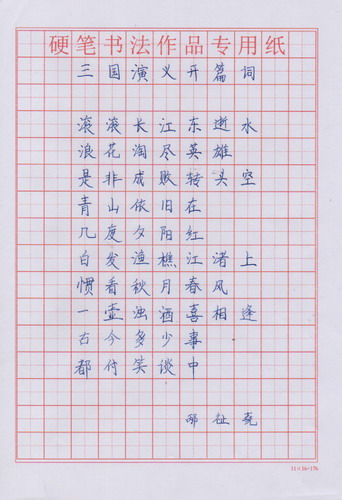 硬笔书法作品专用纸
三国演义开篇词
滚滚长江东逝水
浪花淘尽英雄
是非成败转头空
青山依旧在
几度夕阳红
白发渔樵江渚上
惯看秋月春风
一壶浊酒喜相逢
古今多少事
都付笑谈中
11×16=176